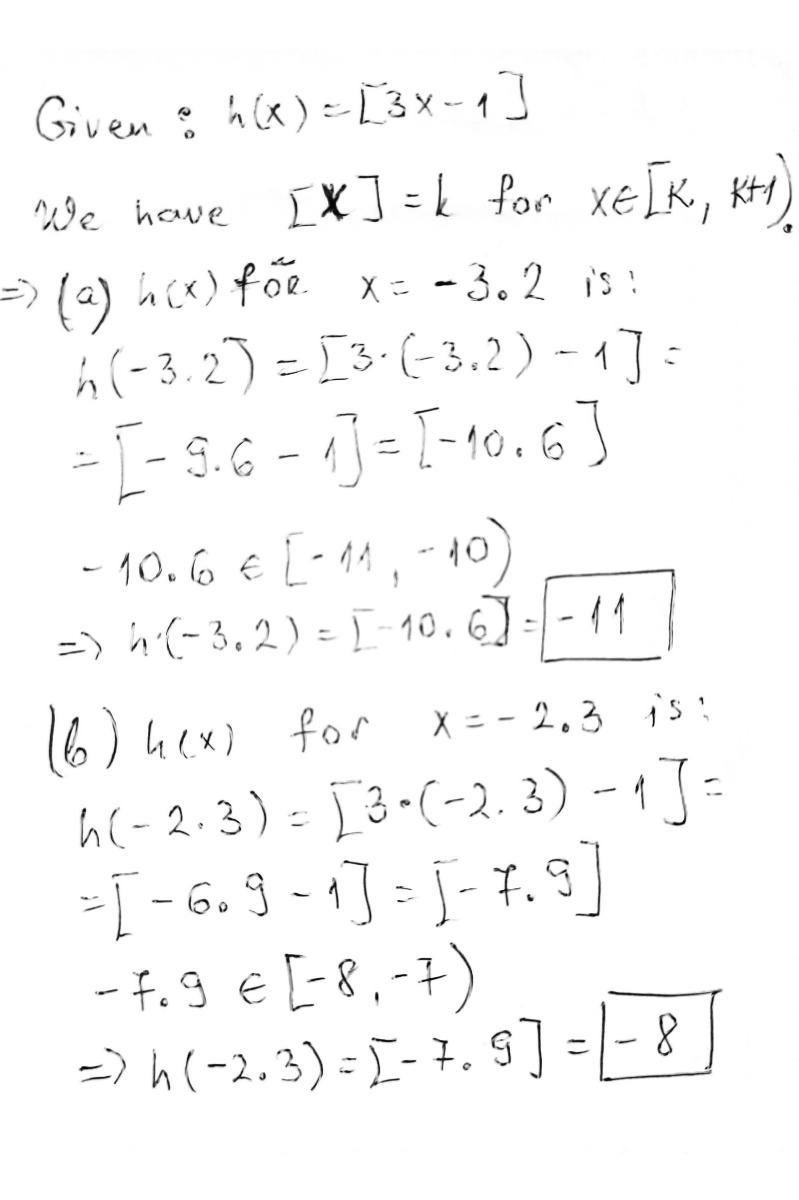 Given : h(x) = [3x-1]
We have [x] = k for x∈[k, k+1).
=> (a) h(x) for x = -3.2 is:
h(-3.2) = [3·(-3.2) - 1] =
= [-9.6 - 1] = [-10.6]
-10.6 ∈ [-11, -10)
=> h(-3.2) = [-10.6] = -11
(b) h(x) for x = -2.3 is:
h(-2.3) = [3·(-2.3) - 1] =
= [-6.9 - 1] = [-7.9]
-7.9 ∈ [-8, -7)
=> h(-2.3) = [-7.9] = -8